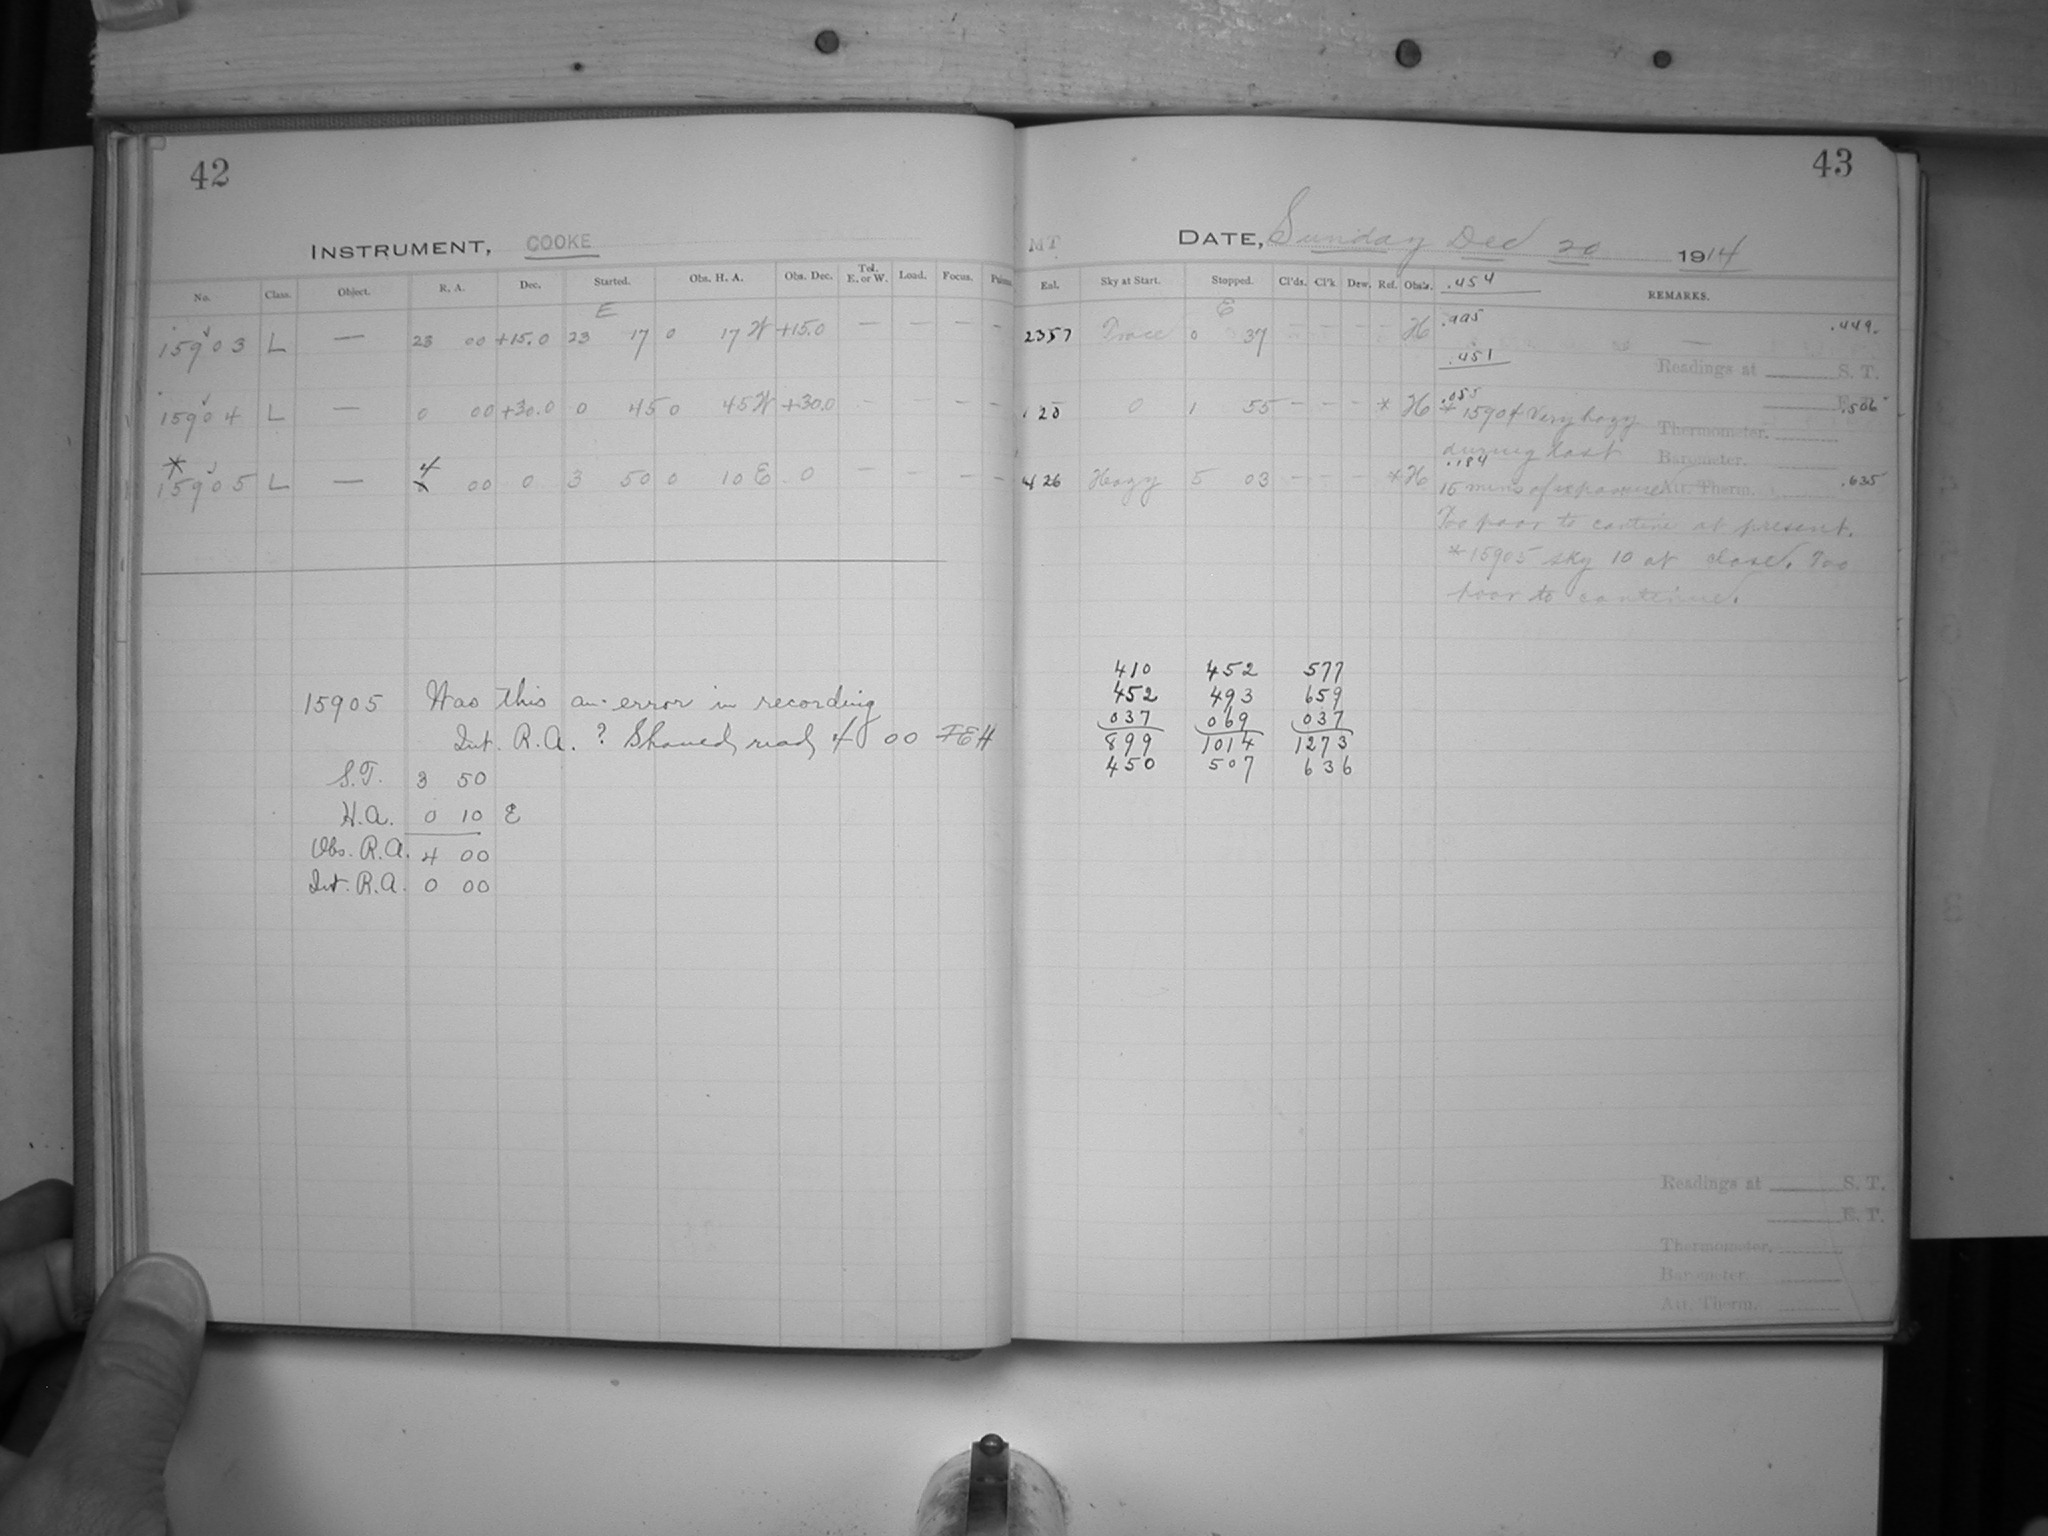 42
INSTRUMENT, COOKE
No. Class. Object. R. A. Dec. Started. Obs. H. A. Obs. Dec. Tel. E. or W. Load. Focus.
E
15903 L — 23 00 +15.0 23 17 0 17 W +15.0 — — — —
15904 L — 0 00 +30.0 0 45 0 45 W +30.0 — — — —
* 4
15905 L — 00 0 3 50 0 10 E 0 — — — —
15905 Was this an error in recording
Int. R.A.? Should read 4 00 FEH
S.T. 3 50
H.A. 0 10 E
Obs. R.A. 4 00
Int. R.A. 0 00
43
MT DATE, Sunday Dec 20 1914
Eal. Sky at Start. Stopped. Cl'ds. Cl'k Dew. Ref. Obs'r. .454 REMARKS.
E
2357 Trace 0 37 — — — — H .995 — .449.
.451
Readings at S. T.
.055
20 0 1 55 — — — * H * 15904 Very hazy .506
Thermometer.
during last Barometer.
.184
426 Hazy 5 03 — — — * H 15 mins of exposure Att. Therm. .635
Too poor to continue at present.
* 15905 sky 10 at close. Too
poor to continue.
410 452 577
452 493 659
037 069 037
899 1014 1273
450 507 636
Readings at S. T.
E. T.
Thermometer.
Barometer
Att. Therm.